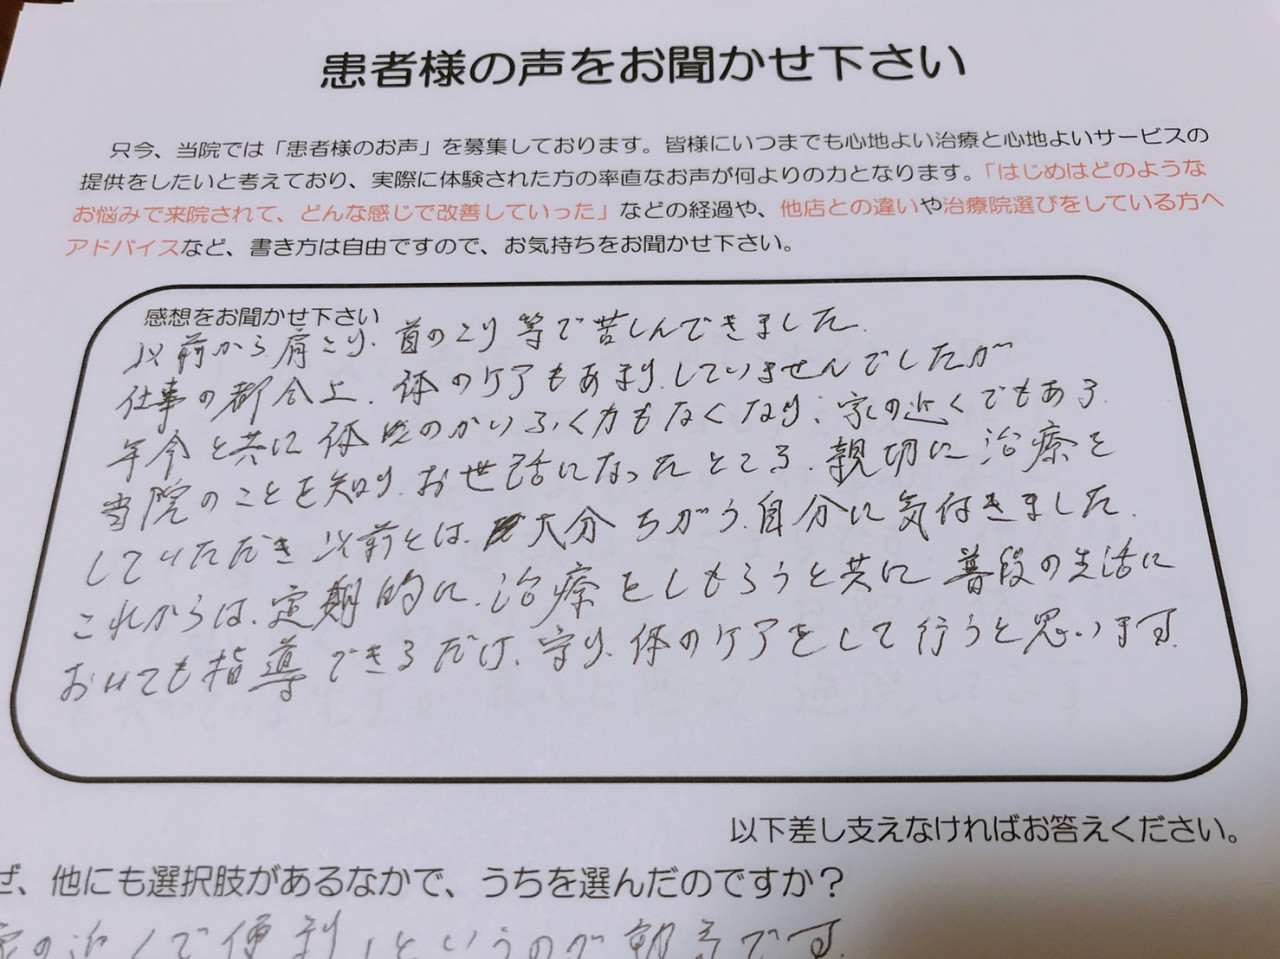 患者様の声をお聞かせ下さい
只今、当院では「患者様のお声」を募集しております。皆様にいつまでも心地よい治療と心地よいサービスの
提供をしたいと考えており、実際に体験された方の率直なお声が何よりの力となります。「はじめはどのような
お悩みで来院されて、どんな感じで改善していった」などの経過や、他店との違いや治療院選びをしている方へ
アドバイスなど、書き方は自由ですので、お気持ちをお聞かせ下さい。
感想をお聞かせ下さい
以前から肩こり、首のこり等で苦しんできました。
仕事の都合上、体のケアもあまりしていませんでしたが
年令と共に体のかいふく力もなくなり、家の近くでもある
当院のことを知り、お世話になったところ、親切に治療を
していただき以前とは、大分ちがう自分に気付きました。
これからは、定期的に、治療をしもらうと共に普段の生活に
おいても指導できるだけ、守り、体のケアをして行うと思います。
以下差し支えなければお答えください。
ぜ、他にも選択肢があるなかで、うちを選んだのですか？
家の近くで便利というのが